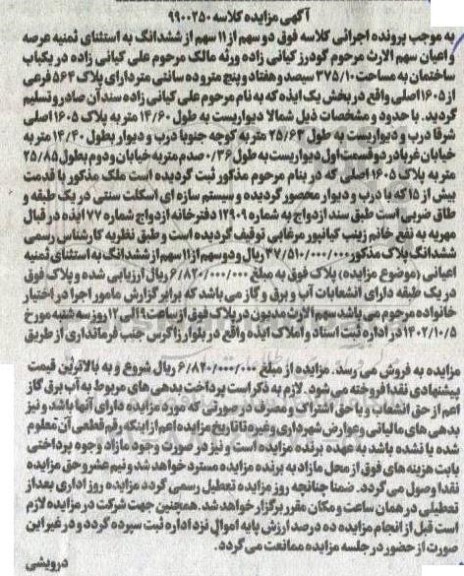 آگهی مزایده کلاسه ۹۹۰۰۲۵۰
به موجب پرونده اجرائی کلاسه فوق دو سهم از ۱۱ سهم از ششدانگ به استثنای ثمنیه عرصه
و اعیان سهم الارث مرحوم گودرز کیانی زاده ورثه مالک مرحوم علی کیانی زاده در یکباب
ساختمان به مساحت ۳۷۵/۱۰ سیصد و هفتاد و پنج متر و ده سانتی متر دارای پلاک ۵۶۴ فرعی
از ۱۶۰۵ اصلی واقع در بخش یک ایذه که به نام مرحوم علی کیانی زاده سند آن صادر و تسلیم
گردید. با حدود و مشخصات ذیل شمالا دیواریست به طول ۱۴/۶۰ متر به پلاک ۱۶۰۵ اصلی
شرقا درب و دیواریست به طول ۲۵/۶۳ متر به کوچه جنوبا درب و دیوار بطول ۱۴/۴۰ متر به
خیابان غربا در دو قسمت اول دیواریست به طول ۰/۳۶ صدم متر به خیابان و دوم بطول ۲۵/۸۵
به پلاک ۱۶۰۵ اصلی که در بنام مرحوم مذکور ثبت گردیده است ملک مذکور با قدمت
بیش از ۱۵ که با درب و دیوار محصور گردیده و سیستم سازه ای اسکلت سنتی در یک طبقه و
طاق ضربی است طبق سند ازدواج به شماره ۱۲۹۰۹ دفترخانه ازدواج شماره ۷۷ ایذه در قبال
مهریه به نفع خانم زینب کیانپور مرغابی توقیف گردیده است و طبق نظریه کارشناس رسمی
ششدانگ پلاک مذکور ۳۷/۵۱۰/۰۰۰/۰۰۰ ریال و دو سهم از ۱۱ سهم از ششدانگ به استثنای ثمنیه
اعیانی (موضوع مزایده) پلاک فوق به مبلغ ۶/۸۲۰/۰۰۰/۰۰۰ ریال ارزیابی شده و پلاک فوق
در یک طبقه دارای انشعابات آب و برق و گاز می باشد که برابر گزارش مامور اجرا در اختیار
خانواده مرحوم می باشد سهم الارث مدیون در پلاک فوق از ساعت ۹ الی ۱۲ روز سه شنبه مورخ
۱۴۰۲/۱۰/۵ در اداره ثبت اسناد و املاک ایذه واقع در بلوار زاگرس جنب فرمانداری از طریق
مزایده به فروش می رسد. مزایده از مبلغ ۶/۸۲۰/۰۰۰/۰۰۰ ریال شروع و به بالاترین قیمت
پیشنهادی نقدا فروخته می شود. لازم به ذکر است پرداخت بدهی های مربوط به آب برق گاز
اعم از حق انشعاب و یا حق اشتراک و مصرف در صورتی که مورد مزایده دارای آنها باشد و نیز
بدهی های مالیاتی و عوارض شهرداری و غیره تا تاریخ مزایده اعم از اینکه رقم قطعی آن معلوم
شده یا نشده باشد به عهده برنده مزایده است و نیز در صورت وجود مازاد وجوه پرداختی
بابت هزینه های فوق از محل مازاد به برنده مزایده مسترد خواهد شد و نیم عشر و حق مزایده
نقدا وصول می گردد. ضمنا چنانچه روز مزایده تعطیل رسمی گردد مزایده روز اداری بعد از
تعطیلی در همان ساعت و مکان مقرر برگزار خواهد شد. همچنین جهت شرکت در مزایده لازم
است قبل از انجام مزایده ده درصد ارزش پایه اموال نزد اداره ثبت سپرده گردد و در غیر این
صورت از حضور در جلسه مزایده ممانعت می گردد.
درویشی